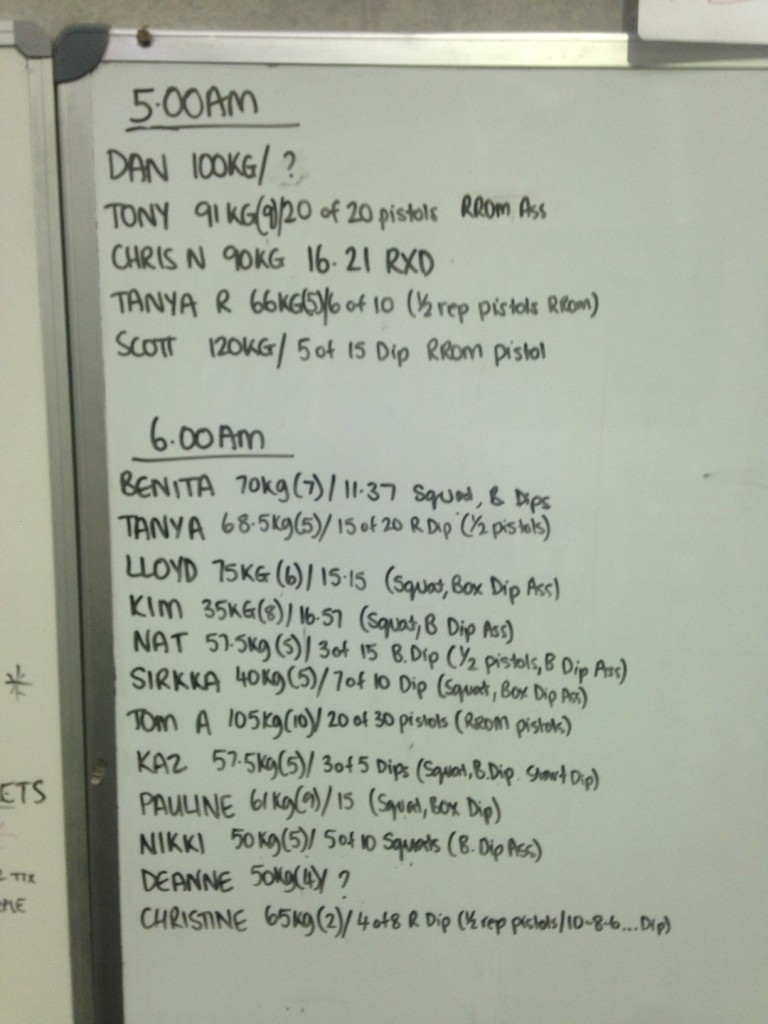 5.00AM
DAN 100KG/ ?
TONY 91KG(9)/20 of 20 pistols RROM Ass
CHRIS N 90KG 16.21 RXD
TANYA R 66KG(5)/6 of 10 (½ rep pistols RROM)
SCOTT 120KG/ 5 of 15 Dip RROM pistol
6.00AM
BENITA 70kg(7)/11.37 Squat, B Dips
TANYA 68.5kg(5)/15 of 20 R Dip (½ pistols)
LLOYD 75KG(6)/15.15 (Squat, Box Dip Ass)
KIM 35KG(8)/16.57 (Squat, B Dip Ass)
NAT 57.5kg(5)/3 of 15 B.Dip (½ pistols, B Dip Ass)
SIRKKA 40kg(5)/7 of 10 Dip (Squat, Box Dip Ass)
TOM A 105kg(10)/20 of 30 pistols (RROM pistols)
KAZ 57.5kg(5)/3 of 5 Dips (Squat, B.Dip. Short Dip)
PAULINE 61kg(9)/15 (Squat, Box Dip)
NIKKI 50kg(5)/5 of 10 Squats (B.Dip Ass)
DEANNE 50kg(4)/ ?
CHRISTINE 65kg(2)/4 of 8 R Dip (½ rep pistols/10-8-6...Dip)
ETS